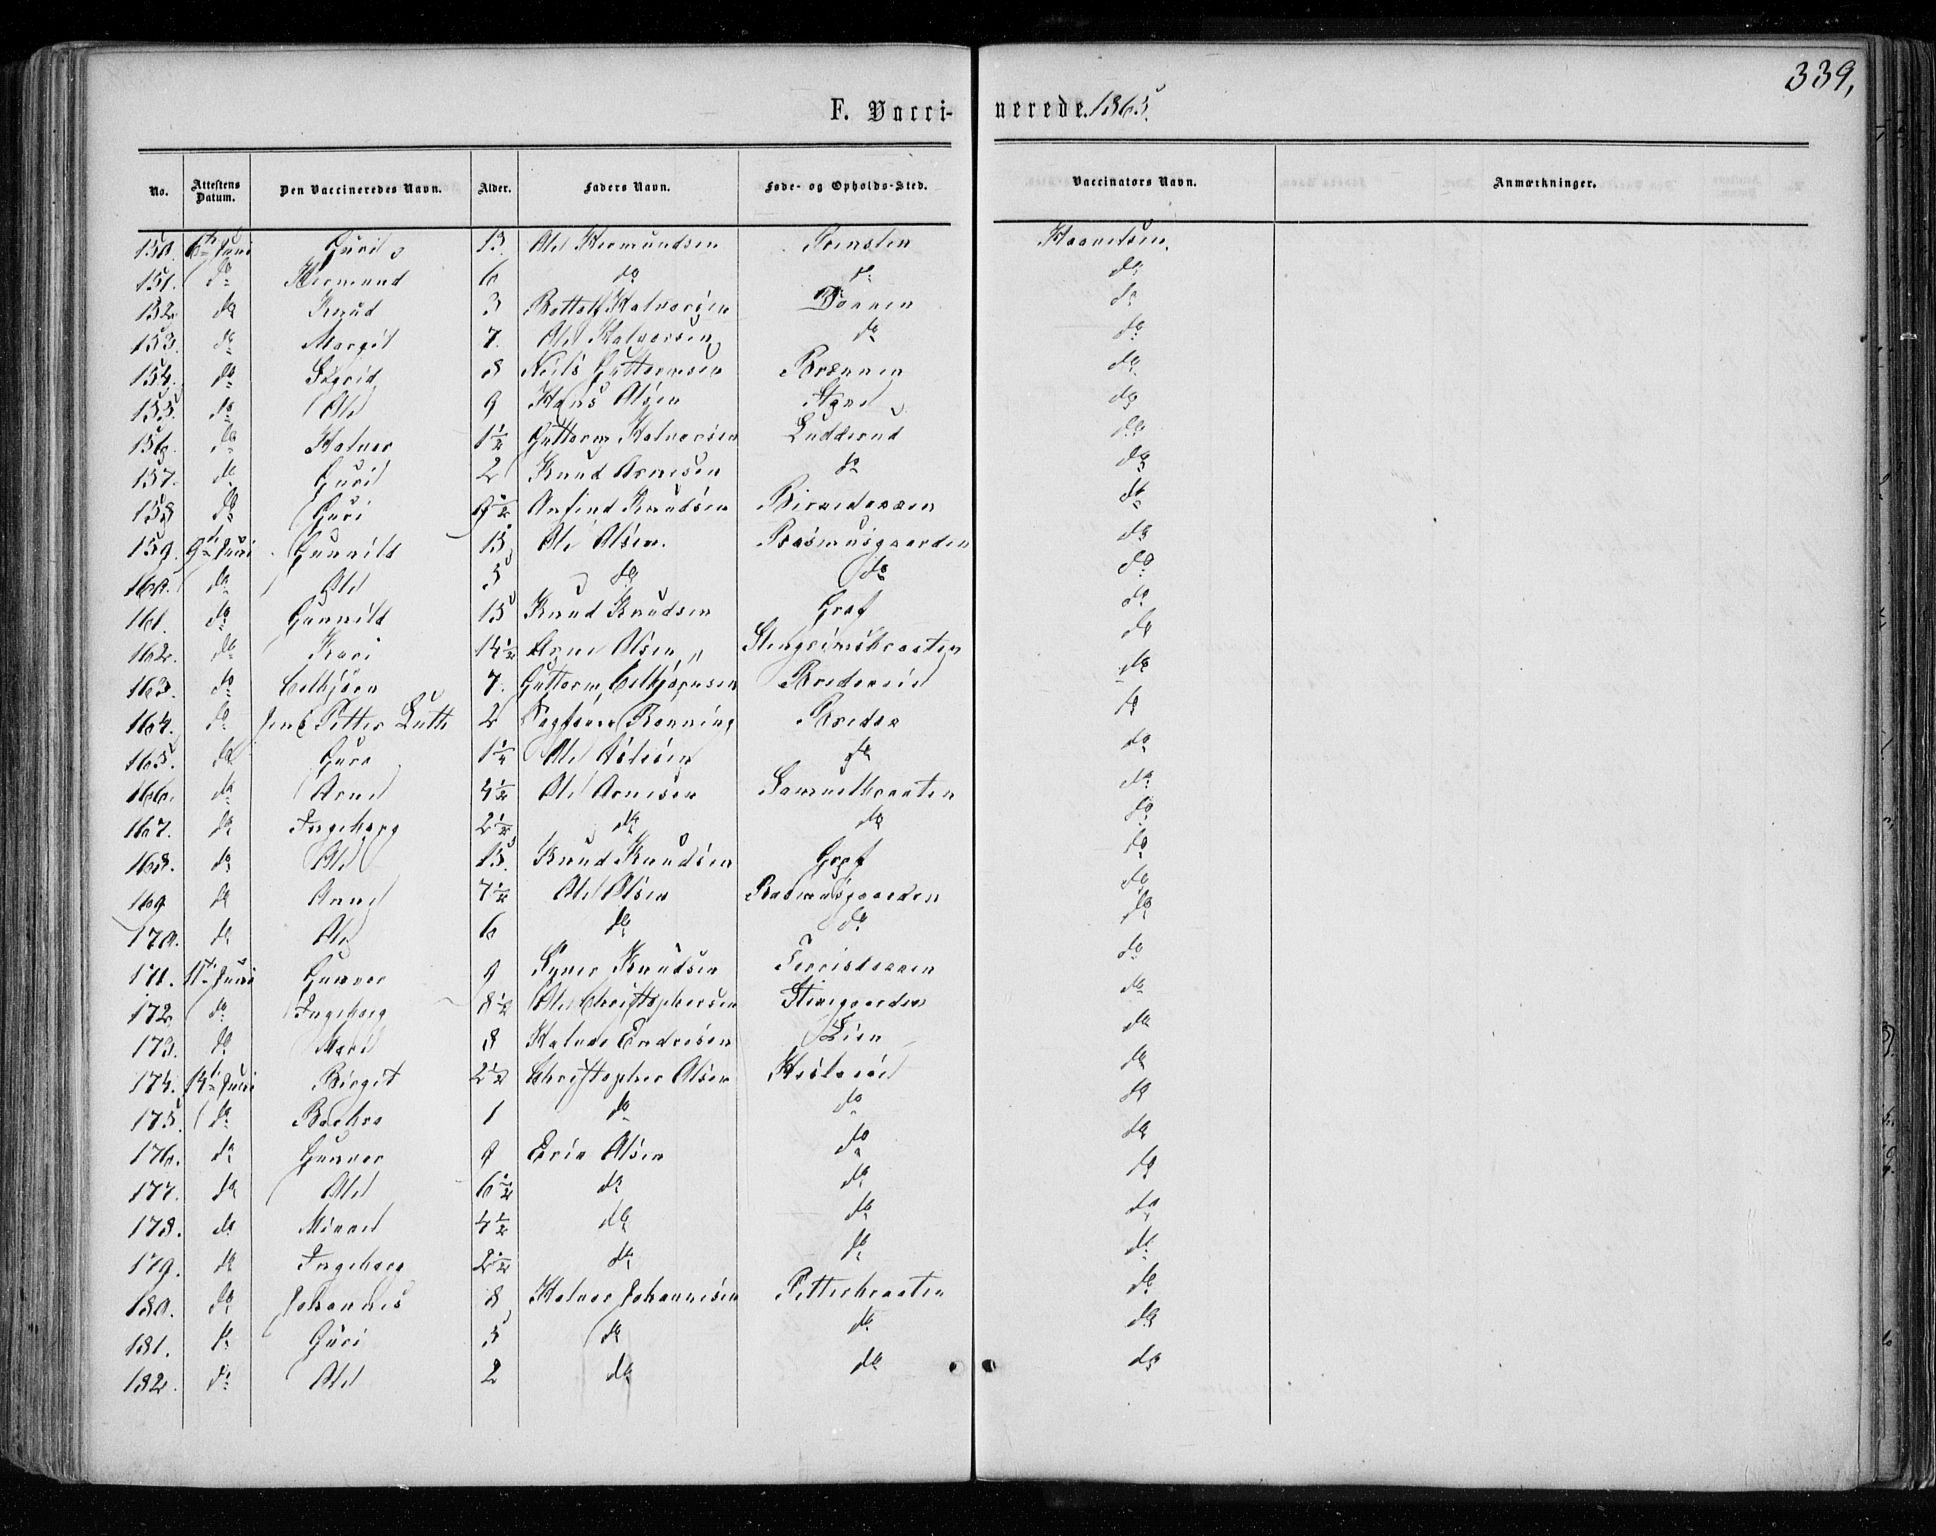 339,
F. Vacci- nerede. 1865.
No. Attestens Datum. Den Vaccineredes Navn. Alder. Faders Navn. Føde- og Opholds-Sted. Vaccinators Navn. Anmærkninger.
150. 6te Juni Guri 13 Ole Hermundsen
151. do Hermund 6 do do do
152. do Knud 3 Bottolf Halvorsen do
153. do Margit 7. Ole Halvorsen do do
154. do Sigrid 8 Niels Guttormsen Brænnen do
155. do Ole 9 Hans Olsen do
156. do Halvor 1½ Guttorm HalvorsenLudderud do
157. do Guri 2 Knud Arnesen do do
158 do Guri Knudsen do
159. 9de Juni Gunnild 15 Ole Olsen. Rasmusgaarden do
160. do Ole 5 do do do
161. do Gunnild 15 Knud Knudsen Graf do
162. do Kari 14½ Arne Olsen do
163. do 7. Guttorm do
164. do Jens Petter Luth 2 Rønning do
165. do Guro Ole do do
166. do Arne 4½ Ole Arnesen Samuelbraaten do
167. do Ingeborg 2½ do do do
168. do Ole 13. Knud Knudsen Graf do
169 do Anne 7½ Ole Olsen Rasmusgaarden do
170. do Ole 6 do do do
171. 11te Juni Gunvor 9 Syver Knudsen do
172 do Ingeborg 8½ Ole Christophersen Stengaarden do
173. do Mari 8 Halvor Endresen Lien do
174. 14de Juni Birgit 2½ Christopher Olsen do
175. do Barbro 1 do do do
176. do Gunvor 9 Eric Olsen do do
177. do Ole 6½ do do do
178. do 4½ do do do
179. do Ingeborg 2½ do do do
180. do Johannes 8 Halvor Johannesen Petterbraaten do
181. do Guri 5 do do do
182. do Ole 2 do do do